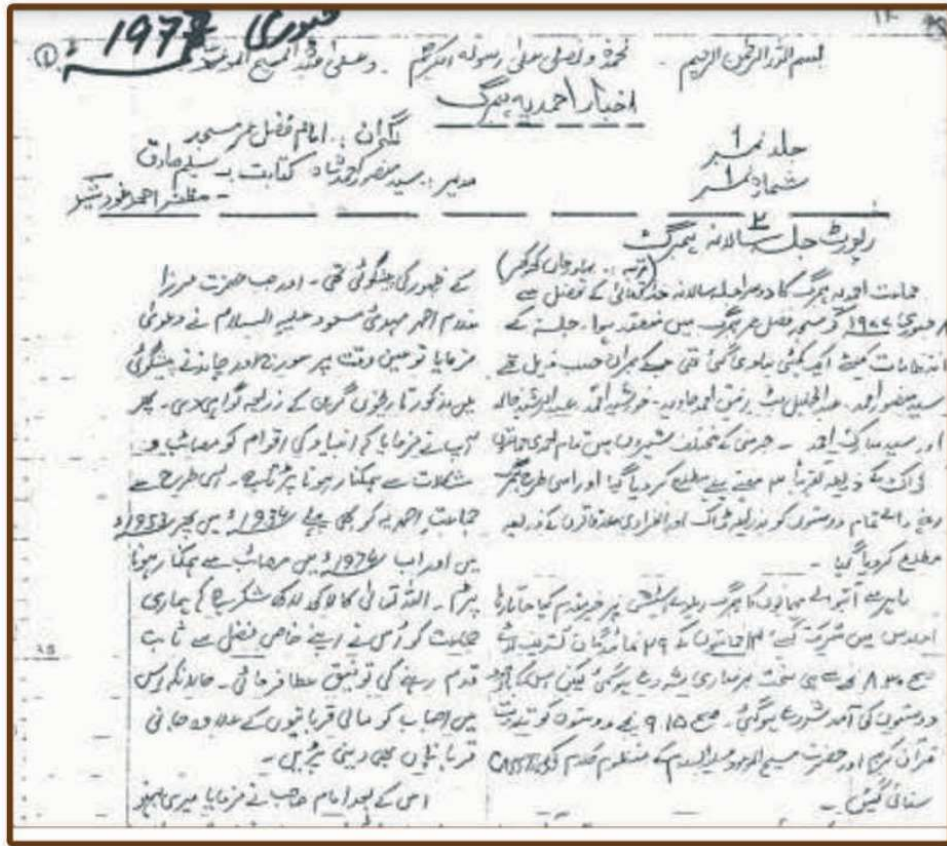 فروری 1977ء
①
بسم اللہ الرحمٰن الرحیم ۔ نحمدہ و نصلی علیٰ رسولہ الکریم ۔ وعلیٰ عبدہ المسیح الموعود
اخبار احمدیہ ہمبرگ
جلد نمبر 1
شمارہ نمبر 1
نگران :۔ امام فضل عمر مسجد
مدیر :۔ سید منصور احمد شاہ کتابت :۔ سلیم صادق
۔ مظفر احمد خورشید
رپورٹ جلسہ سالانہ ہمبرگ
جماعت احمدیہ ہمبرگ کا دوسرا جلسہ سالانہ خدا تعالیٰ کے فضل سے
فروری 1977 کو مسجد فضل عمر ہمبرگ میں منعقد ہوا۔ جلسے کے
انتظامات کیلئے ایک کمیٹی بنا دی گئی تھی جس کے ممبران حسب ذیل تھے
سید منصور احمد ۔ عبدالجلیل بٹ ۔ احمد جاوید ۔ خورشید احمد ۔ عبدالرشید خالد
اور سید احمد ۔ جرمنی کے مختلف شہروں میں تمام احمدی جماعتوں
ڈاک کے ذریعہ تقریباً ہفتے پہلے مطلع کر دیا گیا اور اسی طرح ہمبرگ
تمام دوستوں کو بذریعہ ڈاک اور انفرادی ملاقاتوں کے ذریعہ
مطلع کر دیا گیا ۔
باہر سے آنیوالے مہمانوں کا ہمبرگ ریلوے اسٹیشن پر خیر مقدم کیا جاتا رہا
اجلاس میں شرکت کیلئے جماعتوں کے ۲۹ نمائندگان تشریف لائے
صبح ۸.۳۰ بجے سے ہی سخت برفباری شروع ہو گئی لیکن اس کے باوجود
دوستوں کی آمد شروع ہو گئی۔ صبح ۹.۱۵ بجے دوستوں کو تلاوت
قرآن کریم اور حضرت مسیح الموعود علیہ السلام کے منظوم کلام کی
سنائی گئیں ۔
کے ظہور کی پیشگوئی تھی ۔ اور جب حضرت مرزا
غلام احمد مہدی مسعود علیہ السلام نے دعویٰ
فرمایا تو عین وقت پر سورج اور چاند نے پیشگوئی
میں مذکور تاریخوں گرہن کے ذریعہ گواہی دی ۔ پھر
آپ نے فرمایا کہ انبیاء کی اقوام کو مصائب و
مشکلات سے ہمکنار ہونا پڑتا ہے ۔ اسی طرح سے
جماعت احمدیہ کو بھی پہلے 1934ء میں پھر 1953ء
میں اور اب 1974ء میں مصائب سے ہمکنار ہونا
پڑا ۔ اللہ تعالیٰ کا لاکھ لاکھ شکر ہے کہ ہماری
جماعت کو اس نے اپنے خاص فضل سے ثابت
قدم رہنے کی توفیق عطا فرمائی ۔ حالانکہ اس
میں احباب کو مالی قربانیوں کے علاوہ جانی
قربانیاں بھی دینی پڑیں ۔
اس کے بعد امام صاحب نے فرمایا میری